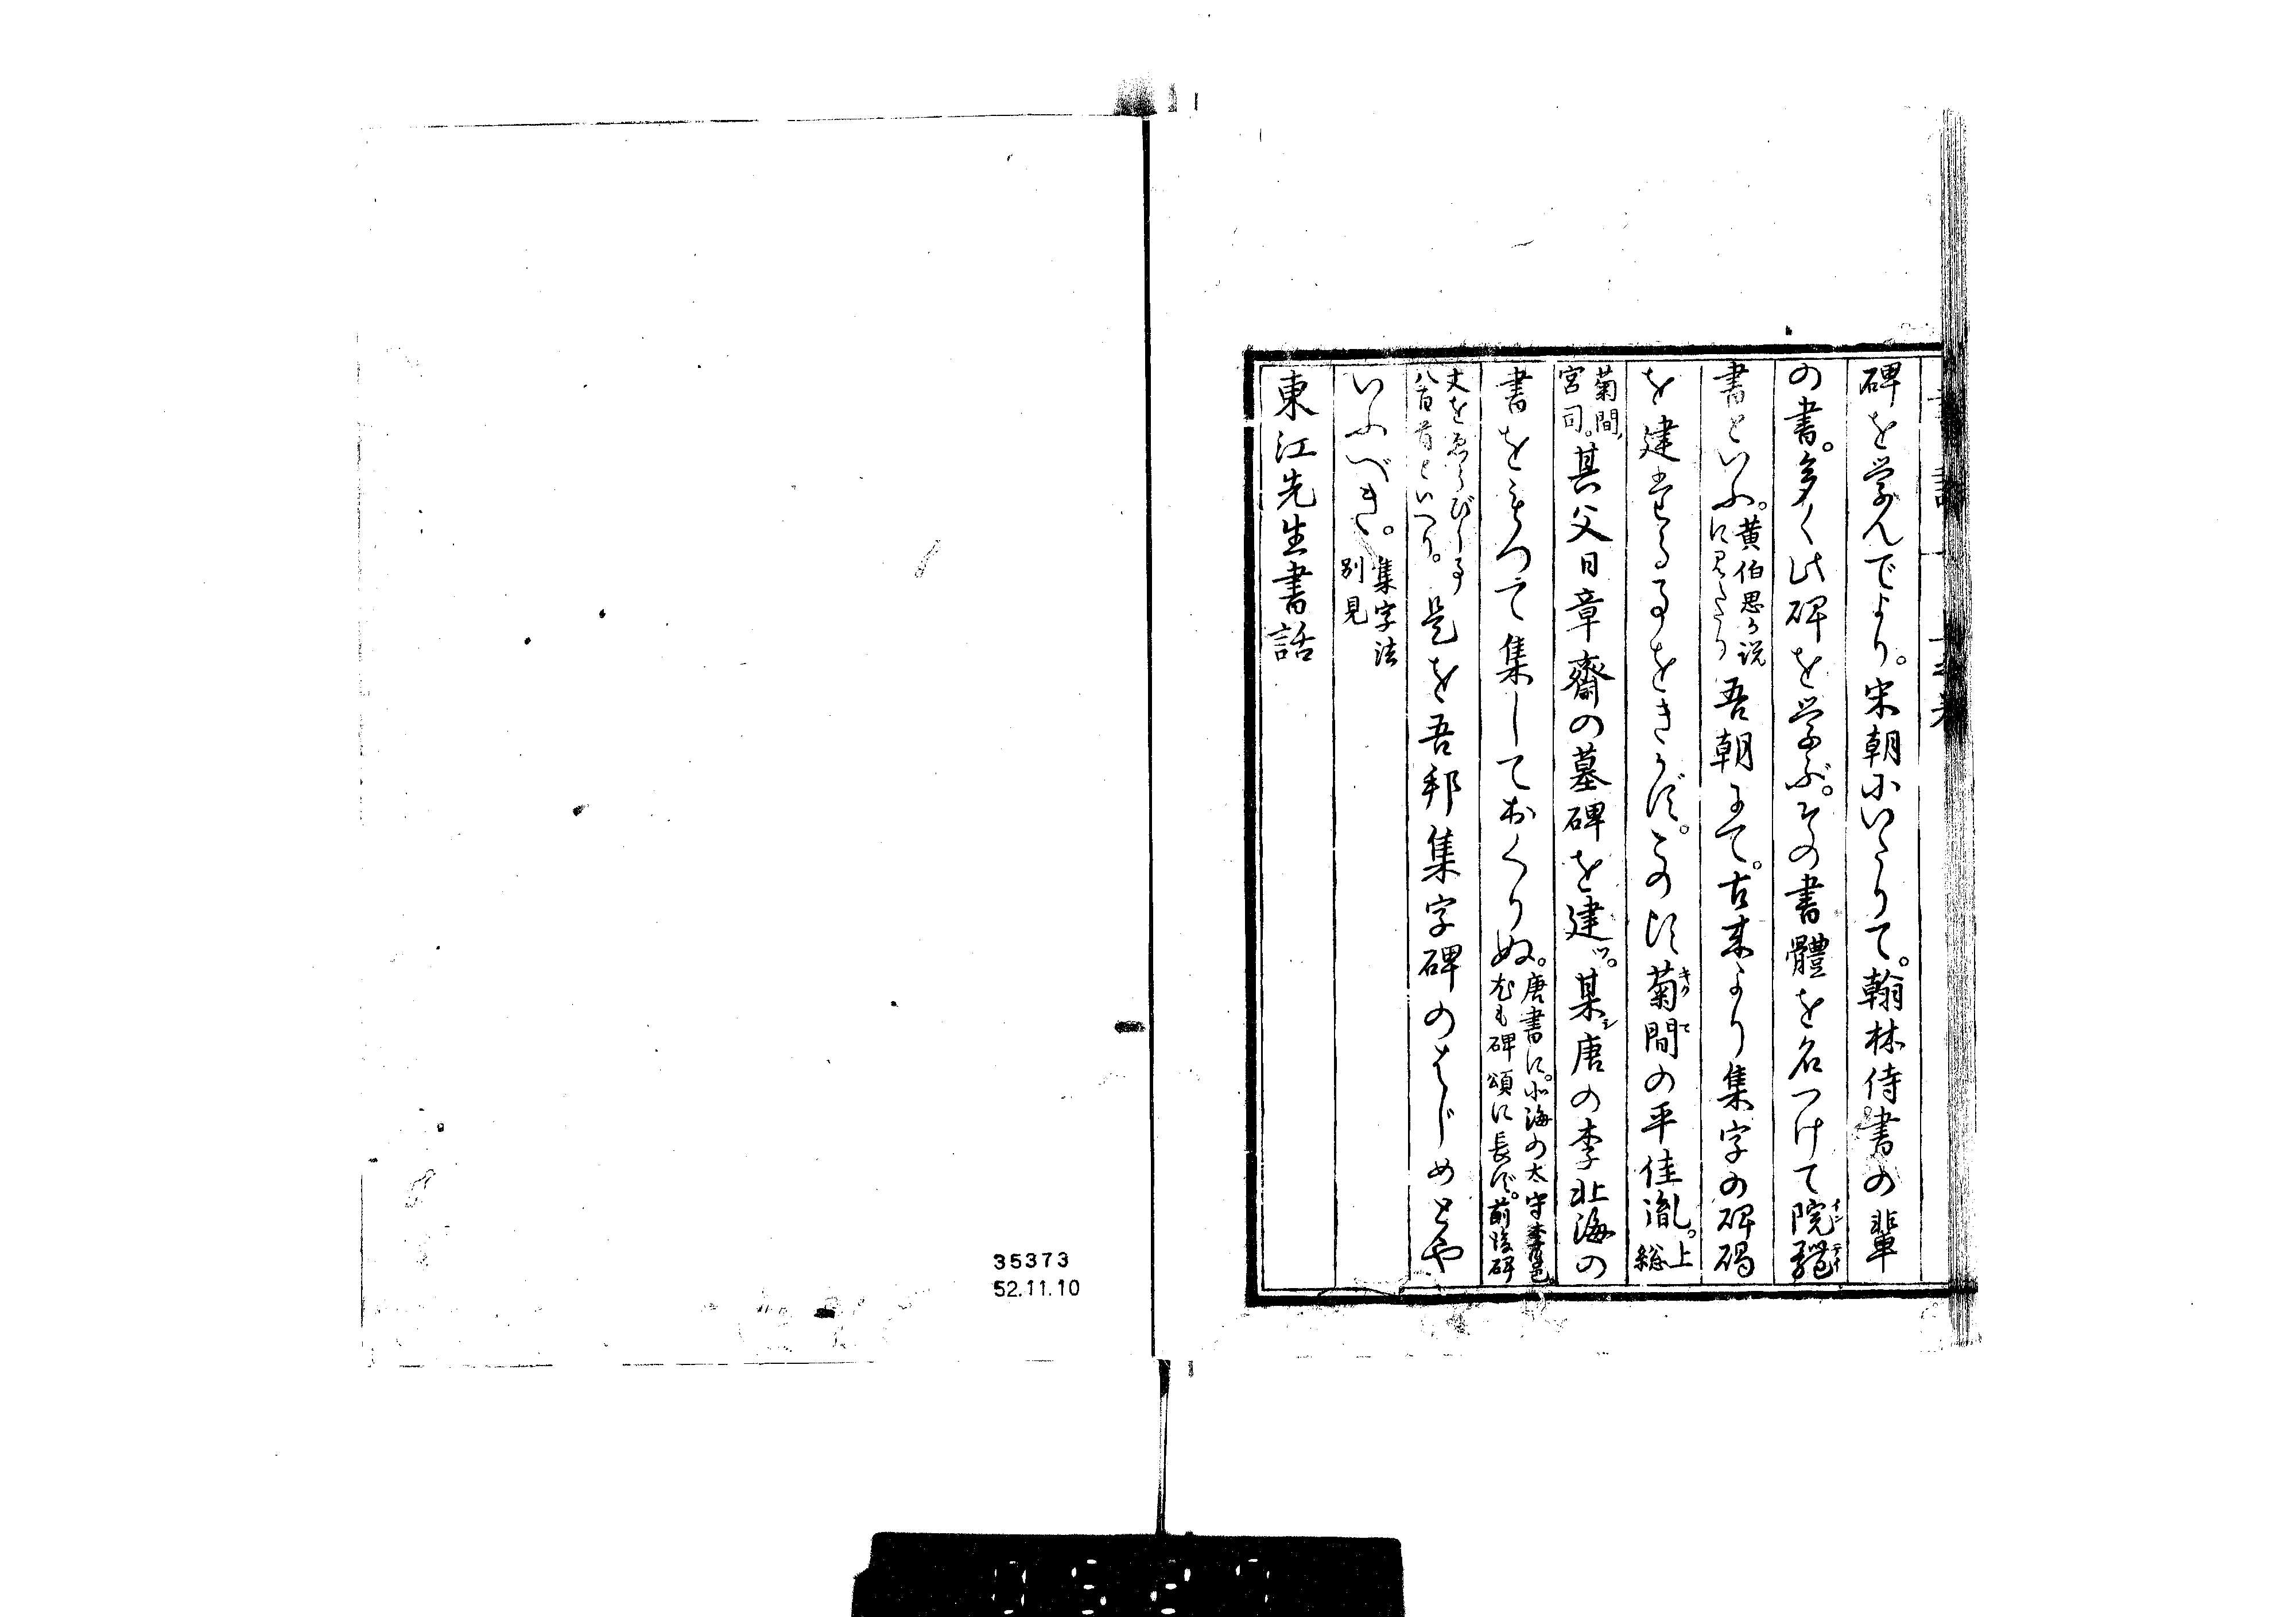 碑を学んでより。宋朝にいたりて。翰林侍書の輩
の書。多く此碑を学ぶ。その書體を名つけて院體
書といふ。黄伯思が説に見えたり 吾朝にて。古来より集字の碑碣
を建たる事をきかず。この比菊間の平佳胤。上総
菊間ノ宮司。其父日章齋の墓碑を建ツ。某唐の李北海の
書をもつて集しておくりぬ。唐書に。北海の太守李邕尤も碑頌に長ず。前後碑
文をゑらびし事八百首といへり。是を吾邦集字碑のはじめとや
いふべき。集字法別見
東江先生書話
35373
52.11.10